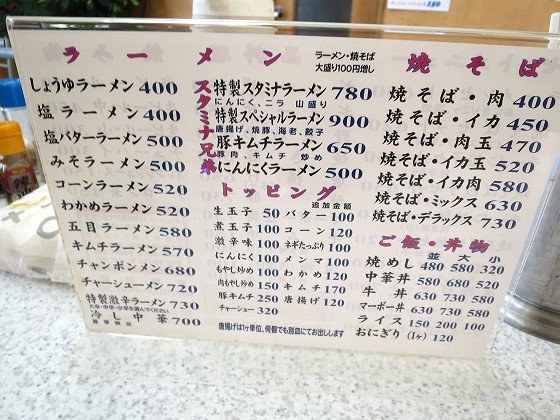 ラーメン
しょうゆラーメン 400
塩ラーメン 400
塩バターラーメン 500
みそラーメン 500
コーンラーメン 520
わかめラーメン 520
五目ラーメン 580
キムチラーメン 570
チャンポンメン 680
チャーシューメン 720
特製激辛ラーメン 730
大辛・中辛・小辛を選んでください
冷し中華 700
夏季限定
ラーメン・焼そば
大盛り100円増し
スタミナ兄弟
特製スタミナラーメン 780
にんにく、ニラ 山盛り
特製スペシャルラーメン 900
唐揚げ、焼豚、海老、餃子
豚キムチラーメン 650
豚肉、キムチ、炒め
にんにくラーメン 500
トッピング
追加金額
生玉子 50
煮玉子 100
激辛味 100
にんにく 100
もやし炒め 100
肉もやし炒め 150
豚キムチ 250
チャーシュー 320
バター 100
コーン 120
ネギたっぷり 100
メンマ 100
わかめ 120
キムチ 170
唐揚げ 120
唐揚げは1ヶ単位、何個でも別皿にてお出しします
焼そば
焼そば・肉 400
焼そば・イカ 450
焼そば・肉玉 470
焼そば・イカ玉 520
焼そば・イカ肉 580
焼そば・ミックス 630
焼そば・デラックス 730
ご飯・丼物
並 大 小
焼めし 480 580 320
中華丼 580 680 520
牛丼 630 730 580
マーボー丼 630 730 580
ライス 150 200 100
おにぎり(1ヶ) 120